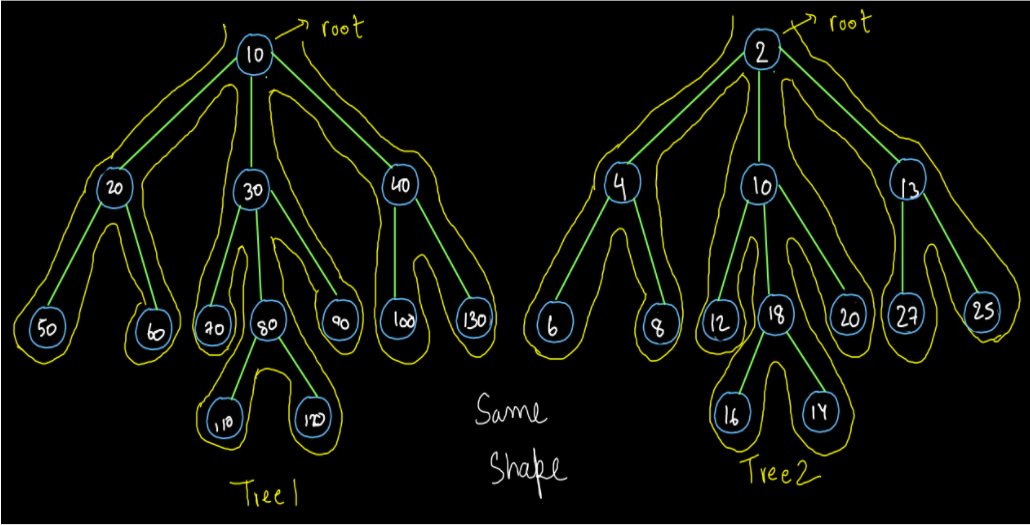 root
10
20 30 40
50 60 70 80 90 100 130
110 120
Tree1
Same
Shape
root
2
4 10 13
6 8 12 18 20 27 25
16 14
Tree2